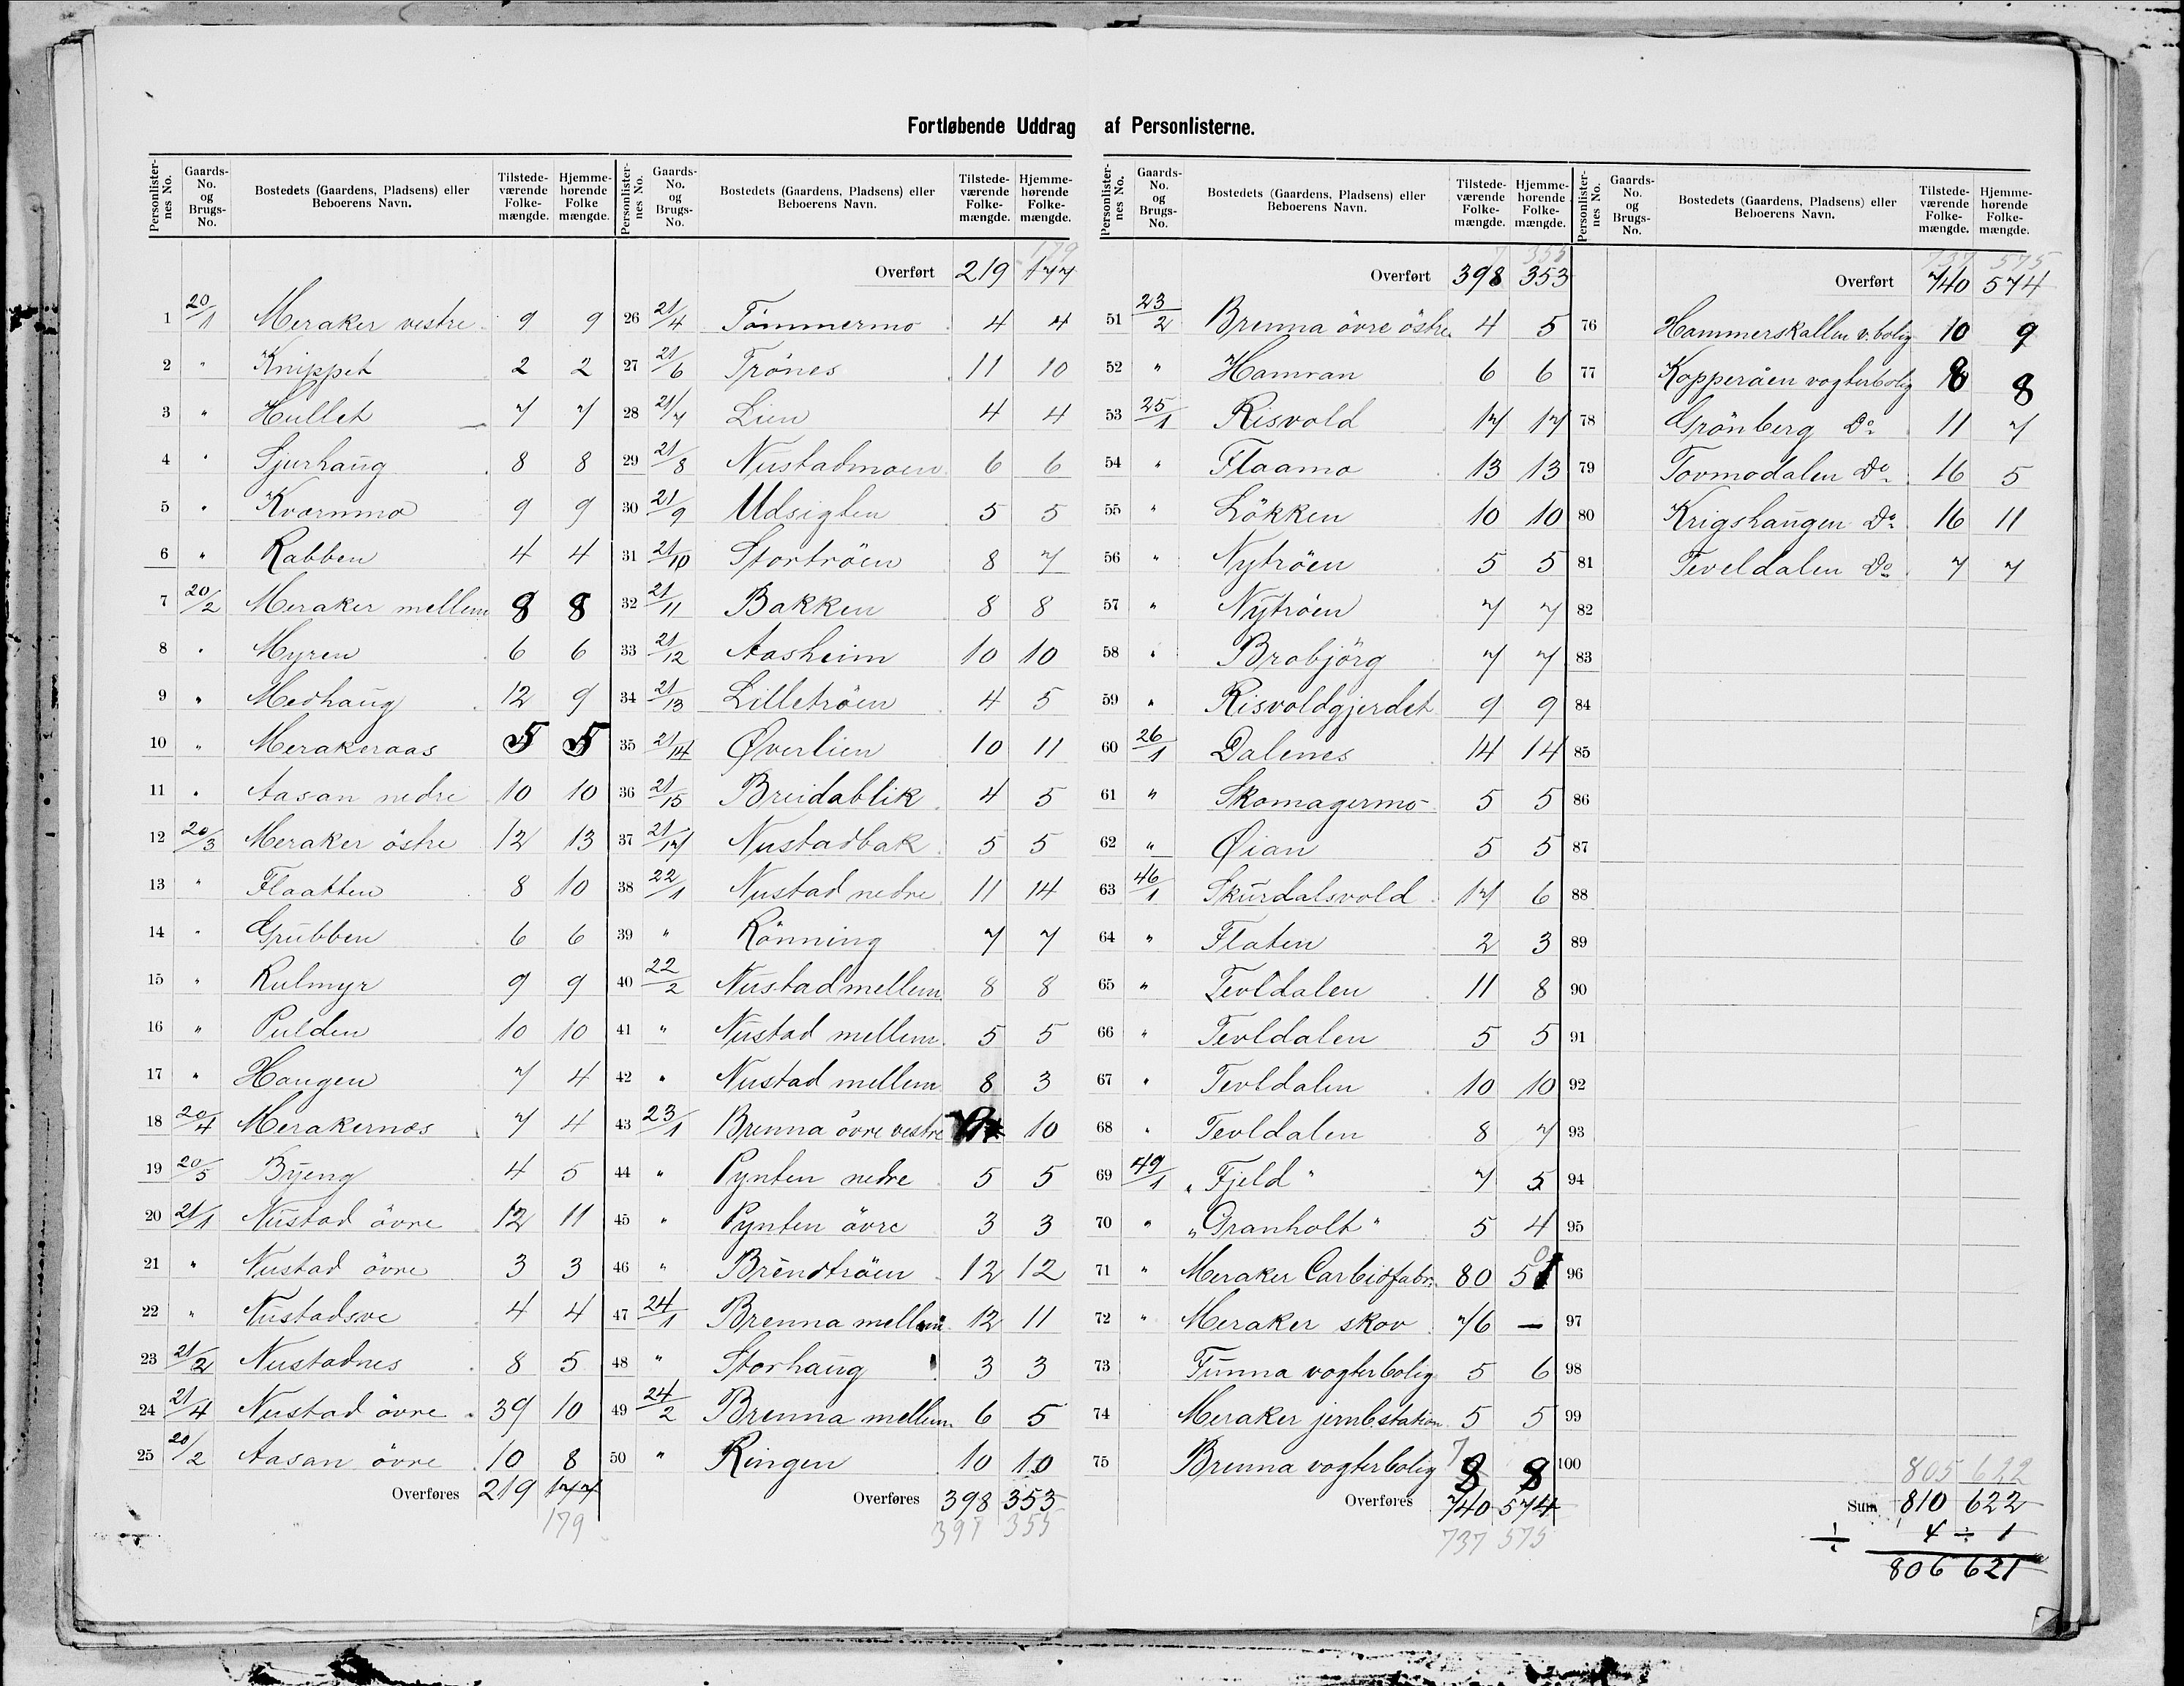 Fortløbende Uddrag af Personlisterne.
Personlisternes No. Gaards-No. og Brugs-No. Bostedets (Gaardens, Pladsens) eller Beboerens Navn. Tilstedeværende Folkemængde. Hjemmehørende Folkemængde.
1 20/1 Meraker vestre 9 9
2 " Knippet 2 2
3 " Hullet 7 7
4 " Sjurhaug 8 8
5 " Kvernmo 9 9
6 " Rabben 4 4
7 20/2 Meraker mellem 8 8
8 " Myren 6 6
9 " Medhaug 12 9
10 " Merakeraas 5 5
11 " Aasan nedre 10 10
12 20/3 Meraker östre 12 13
13 " Flaatten 8 10
14 " Grubben 6 6
15 " Kulmyr 9 9
16 " Pulden 10 10
17 " Haugen 7 4
18 20/4 Merakernæs 7 4
19 20/5 Byeng 4 5
20 21/1 Nustad övre 12 11
21 " Nustad övre 3 3
22 " Nustadsve 4 4
23 21/2 Nustadnes 8 5
24 21/4 Nustad övre 39 10
25 20/2 Aasan övre 10 8
Overføres 219 177
179
Personlisternes No. Gaards-No. og Brugs-No. Bostedets (Gaardens, Pladsens) eller Beboerens Navn. Tilstedeværende Folkemængde. Hjemmehørende Folkemængde.
179
Overført 219 177
26 21/4 Tömmermo 4 4
27 21/6 Trönes 11 10
28 21/7 Lien 4 4
29 21/8 Nustadmoen 6 6
30 21/9 Udsigten 5 5
31 21/10 Stortröen 8 7
32 21/11 Bakken 8 8
33 21/12 Aasheim 10 10
34 21/13 Lilletröen 4 5
35 21/14 Øverlien 10 11
36 21/15 Breidablik 4 5
37 21/17 Nustadbak 5 5
38 22/1 Nustad nedre 11 14
39 " Rönning 7 7
40 22/2 Nustad mellem 8 8
41 " Nustad mellem 5 5
42 " Nustad mellem 8 3
43 23/1 Brenna övre vestre 10
44 " Pynten nedre 5 5
45 " Pynten övre 3 3
46 " Brendtröen 12 12
47 24/1 Brenna mellem 12 11
48 " Storhaug 3 3
49 24/2 Brenna mellem 6 5
50 " Ringen 10 10
Overføres 398 353
397 355
Personlisternes No. Gaards-No. og Brugs-No. Bostedets (Gaardens, Pladsens) eller Beboerens Navn. Tilstedeværende Folkemængde. Hjemmehørende Folkemængde.
7 355
Overført 398 353
51 23/2 Brenna övre östre 4 5
52 " Hamran 6 6
53 25/1 Risvold 17 17
54 " Flaamo 13 13
55 " Lökken 10 10
56 " Nytröen 5 5
57 " Nytröen 7 7
58 " Brobjörg 7 7
59 " Risvoldgjerdet 9 9
60 26/1 Dalenes 14 14
61 " Skomagermo 5 5
62 " Øian 5 5
63 46/1 Skurdalsvold 17 6
64 " Flaten 2 3
65 " Tevldalen 11 8
66 " Tevldalen 5 5
67 " Tevldalen 10 10
68 " Tevldalen 8 7
69 49/1 "Fjeld" 7 5
70 " "Granholt" 5 4
71 " Meraker Carbidfabr. 80 51
72 " Meraker skov 76 —
73 Tunna vogterbolig 5 6
74 Meraker jernb.station 5 5
75 Brenna vogterbolig 8 8
Overføres 740 574
737 575
Personlisternes No. Gaards-No. og Brugs-No. Bostedets (Gaardens, Pladsens) eller Beboerens Navn. Tilstedeværende Folkemængde. Hjemmehørende Folkemængde.
737 575
Overført 740 574
76 Hammerskallen v.bolig 10 9
77 Kopperåen vogterbolig 8 8
78 Grönberg Do 11 7
79 Tovmodalen Do 16 5
80 Krigshaugen Do 16 11
81 Teveldalen Do 7 7
82
83
84
85
86
87
88
89
90
91
92
93
94
95
96
97
98
99
100
805 622
Sum 810 622
÷ 4 ÷ 1
806 621